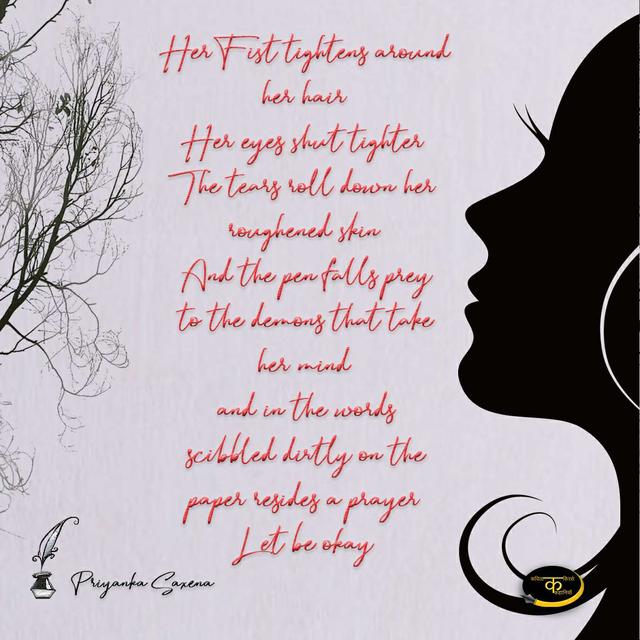 Her Fist tightens around
her hair
Her eyes shut tighter
The tears roll down her
roughened skin
And the pen falls prey
to the demons that take
her mind
and in the words
scibbled dirtly on the
paper resides a prayer
Let be okay
Priyanka Saxena
क